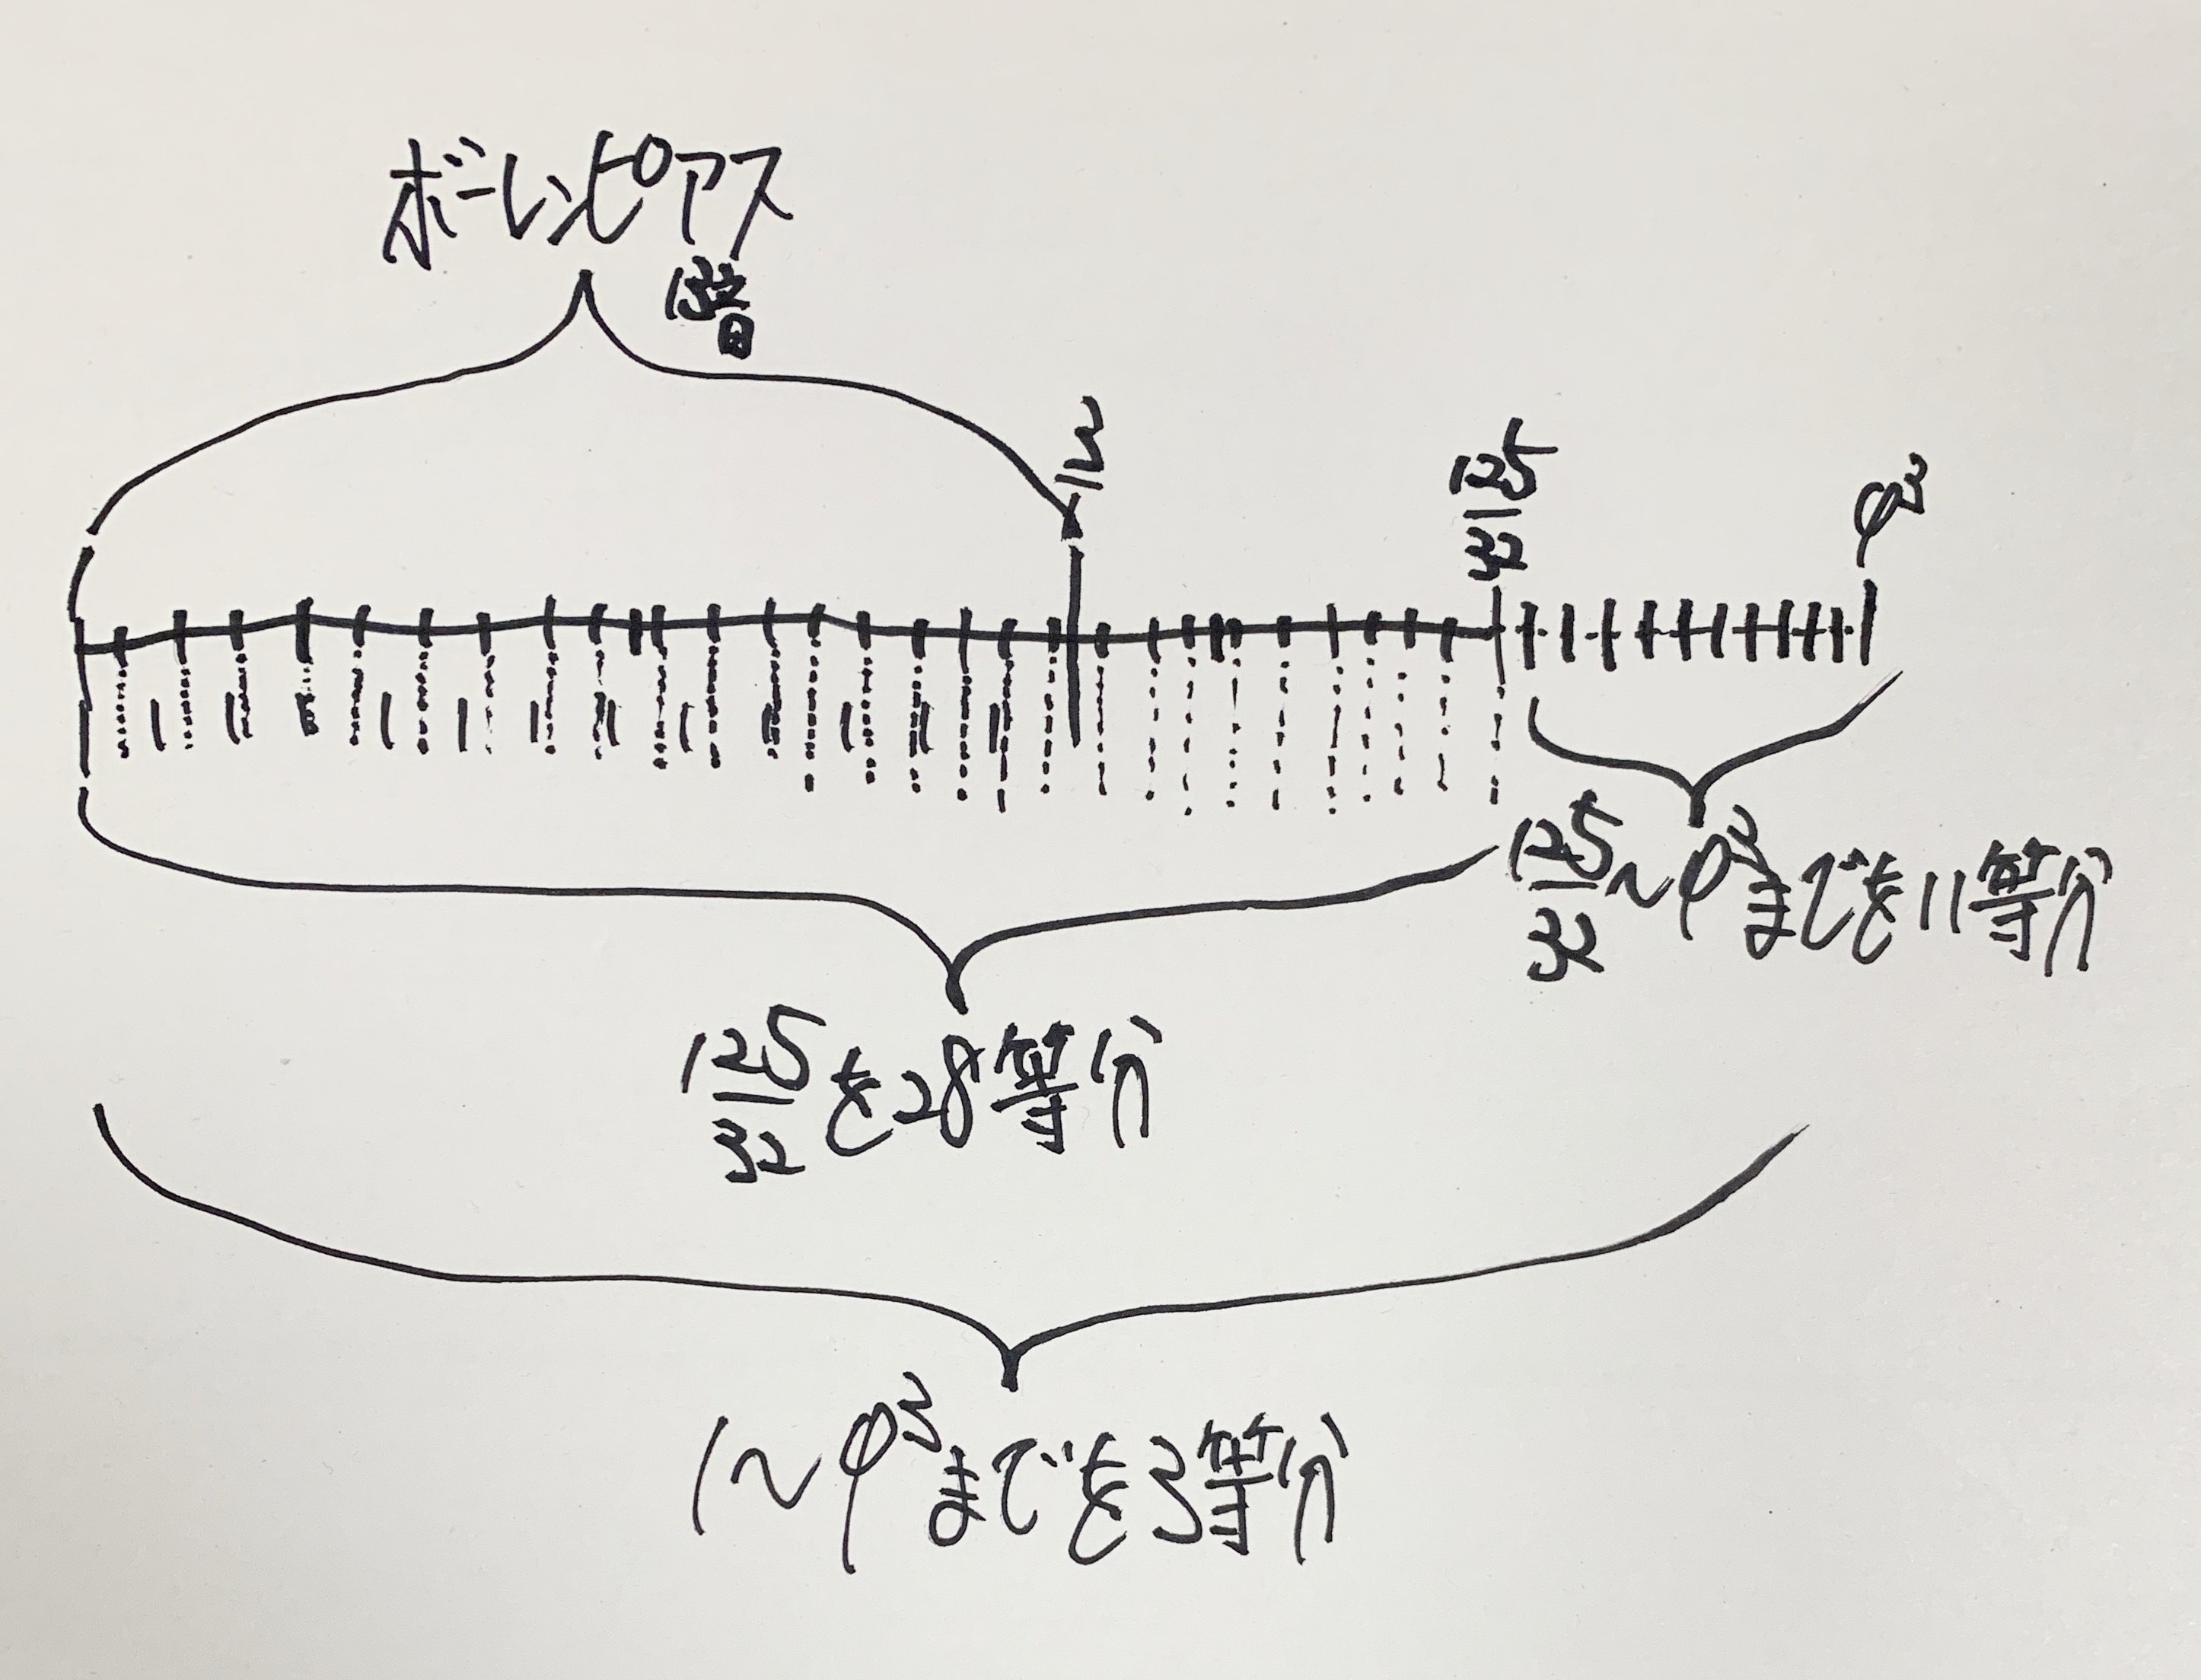 ボーレンピアス
13音
3/1
125/32
φ³
125/32~φ³までを11等分
125/32を28等分
1~φ³までを3等分